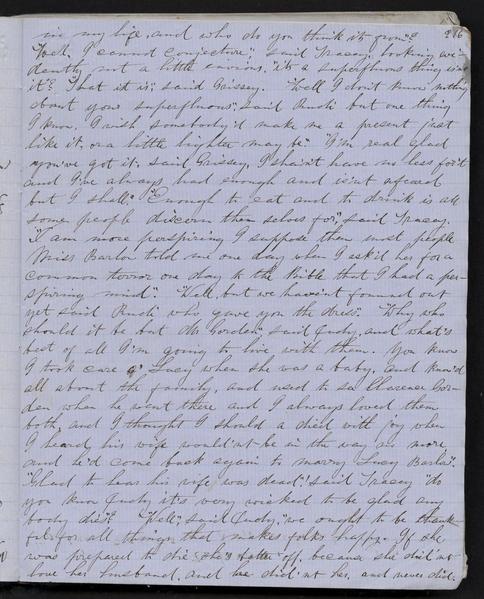 in my life, and who do you think it's from"? 286
"Well, I cannot conjecture", said Tracey, looking evi-
dently not a little envious, "it's a superfluous thing isn't
it"? "That it is", said Grissey. "Well I don't know nothing
about your superfluous", said Ruth but one thing
I know, I wish somebody'd make me a present just
like it, or a little brighter may be". "I'm real glad
you've got it, said Grissey, I sha'n't have no less for't
and I've always had enough and isn't afeard
but I shall" "Enough to eat and to drink is all
some people discern them selves for", said Tracey.
"I am more perspiring I suppose then most people
Miss Barlow told me one day when I ask'd her for a
common terror one day to the Bible that I had a per-
spiring mind". "Well, but we havn't founnd out
yet said Ruth who gave you the dress". "Why who
should it be but Mr Gorden" said Judy, and what's
best of all I'm going to live with them. You know
I took care of Lucy when she was a baby, and know'd
all about the family, and used to see Clarence Gor-
den when he went there and I always loved them
both, and I thought I should a died with joy when
I heard his wife would'nt be in the way no more
and he'd come back again to marry Lucy Barlo".
"Glad to hear his wife was dead"! said Tracey "do
you know Judy it's very wicked to be glad any
body dies"? "Well", said Judy, "we ought to be thank-
ful for all things that makes folks happy. If she
was prepared to die she's better off, because she did'nt
love her husband, and he did'nt her, and never did.